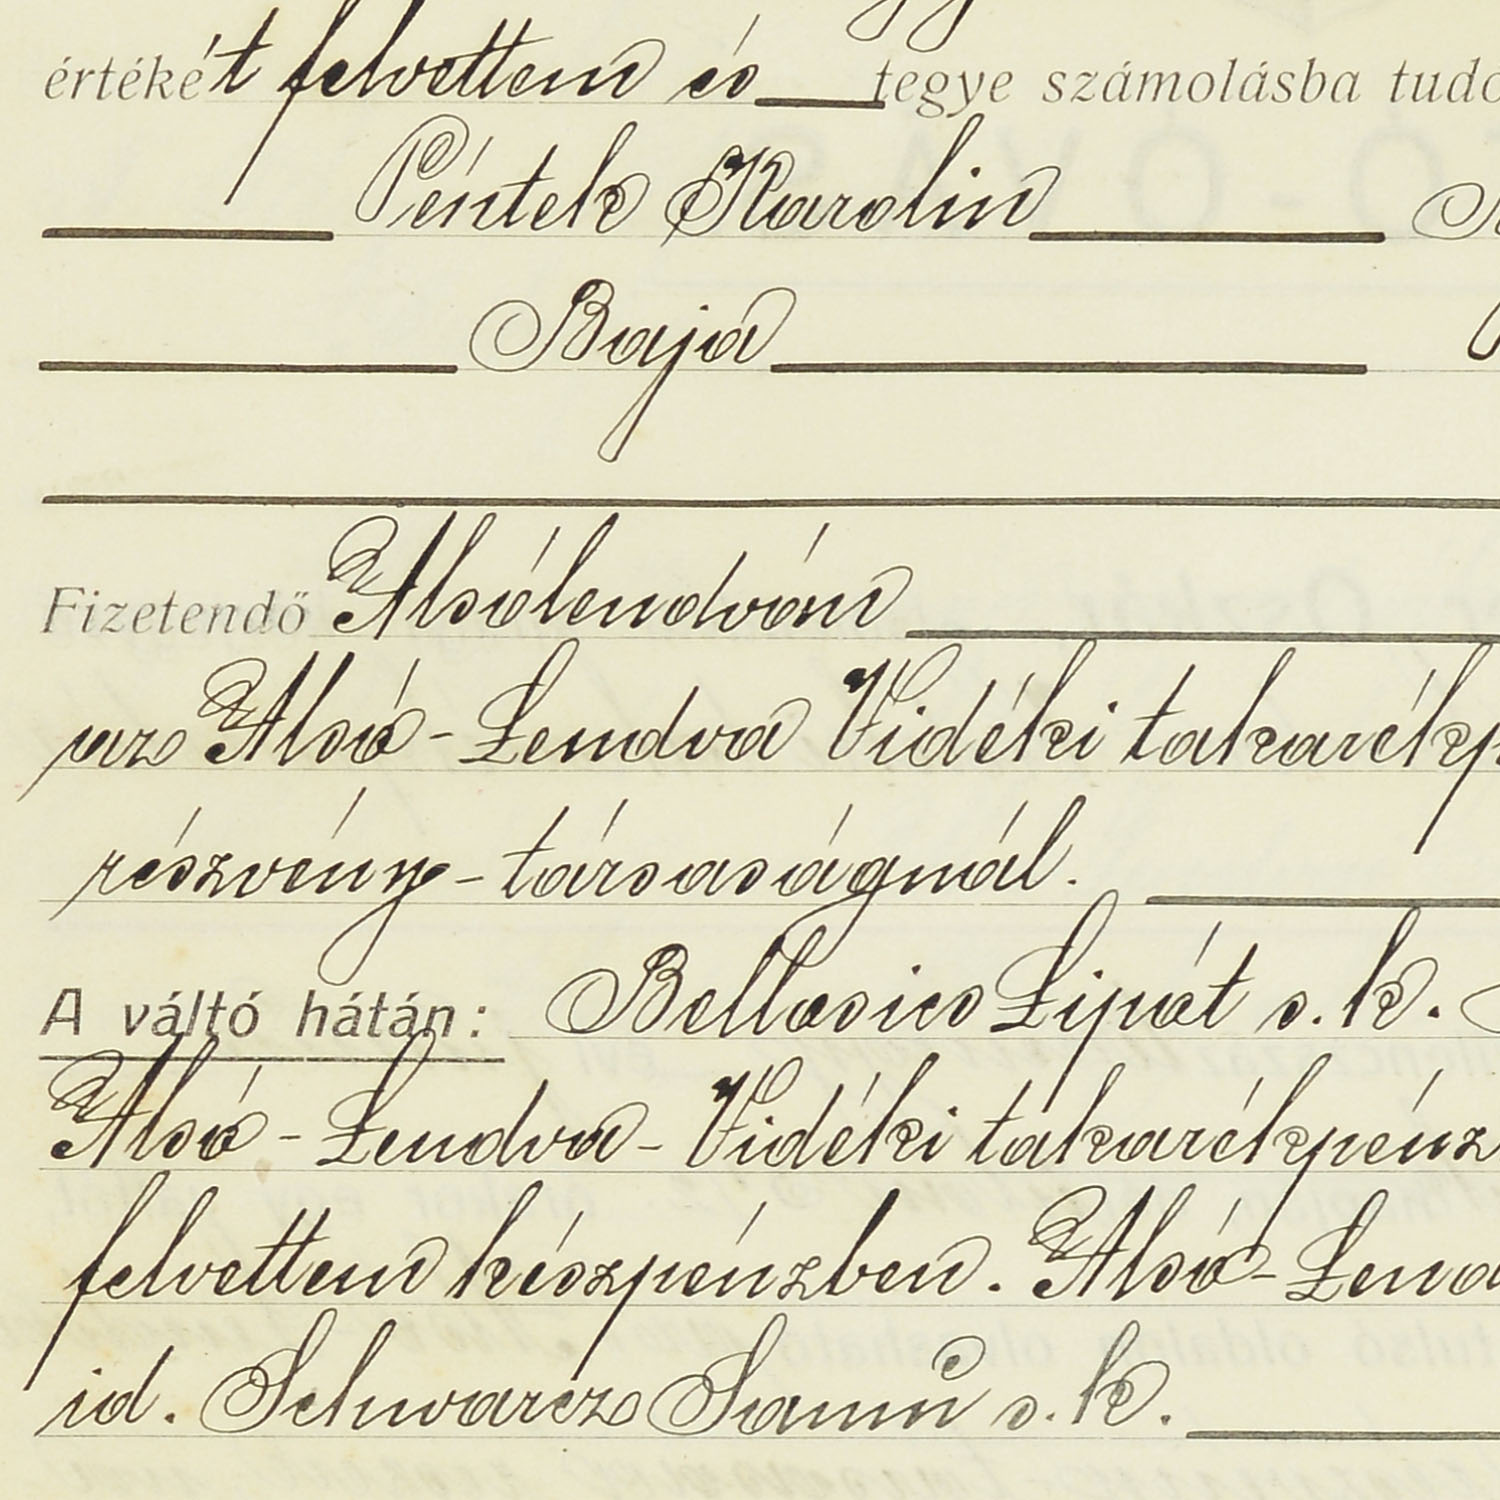 értékét felvettem és tegye számolásba
Péntek Karolin
Baja
Fizetendő Alsólendván
az Alsó-Lendva Vidéki
részvény-társaságnál.
A váltó hátán: Bellosics Lipót s.k.
Alsó-Lendva-Vidéki takarékpénz
felvettem készpénzben. Alsó-Lend
id. Schwarcz Samu s.k.